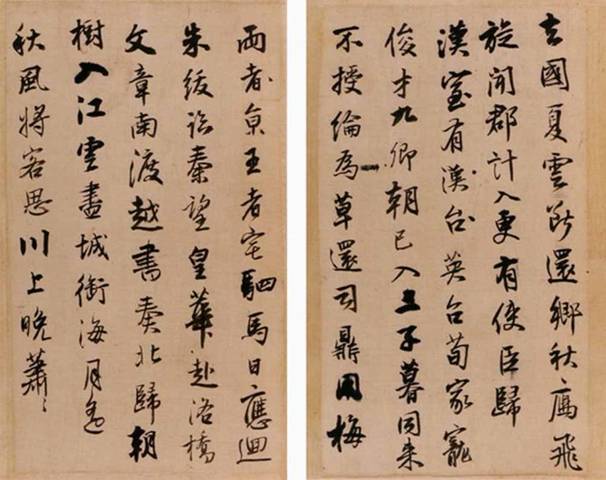 去國夏雲斷還鄉秋雁飛
旋聞郡計入更有使臣歸
漢室有漢台英台荀家寵
俊才九卿朝已入三子暮同来
不授綸為草還司鼎用梅
兩都京王者宅駟馬日應迴
朱紱臨秦望皇華赴洛橋
文章南渡越書奏北歸朝
樹入江雲盡城銜海月遙
秋風將客思川上晚蕭〻